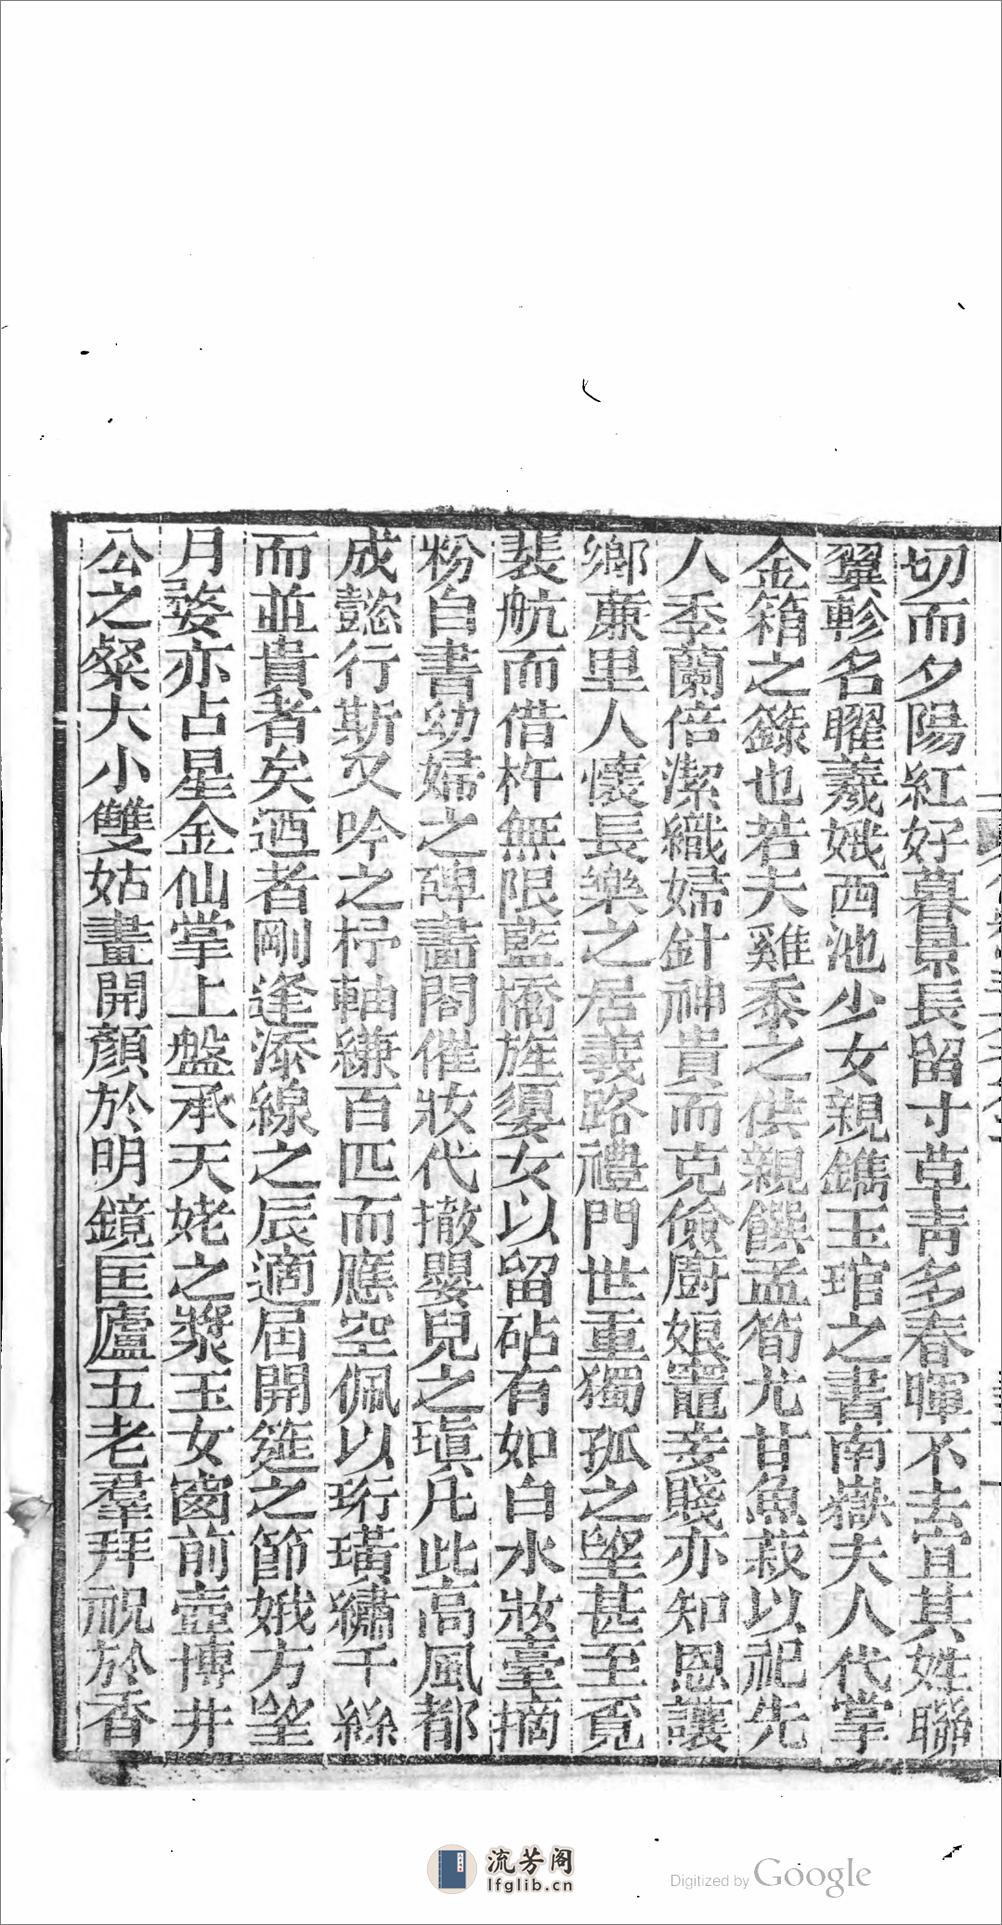 切而夕陽紅好暮景長留寸草靑多春暉不去宜其姓聯
翼軫名曜羲娥西池少女親鐫玉琯之書南嶽夫人代掌
金箱之籙也若夫雞黍之供親饌孟筍尤甘魚菽以祀先
人季蘭倍潔織婦針神貴而克儉廚娘竈妾賤亦知恩讓
鄉廉里人懷長樂之居義路禮門世重獨孤之望甚至覓
裴航而借杵無限藍橋旌嬃女以留砧有如白水妝臺摘
粉自書幼婦之碑畵閣催妝代撤嬰兒之瑱凡此高風都
成懿行斯又吟之杼軸縑百匹而應空佩以珩璜繡千絲
而並貴者矣迺者剛逢添線之辰適届開筵之節娥方望
月婺亦占星金仙掌上盤承天姥之漿玉女窗前壺博井
公之粲大小雙姑畫開顏於明鏡匡廬五老羣拜祝於香
流芳阁
lfglib.cn
Digitized by Google